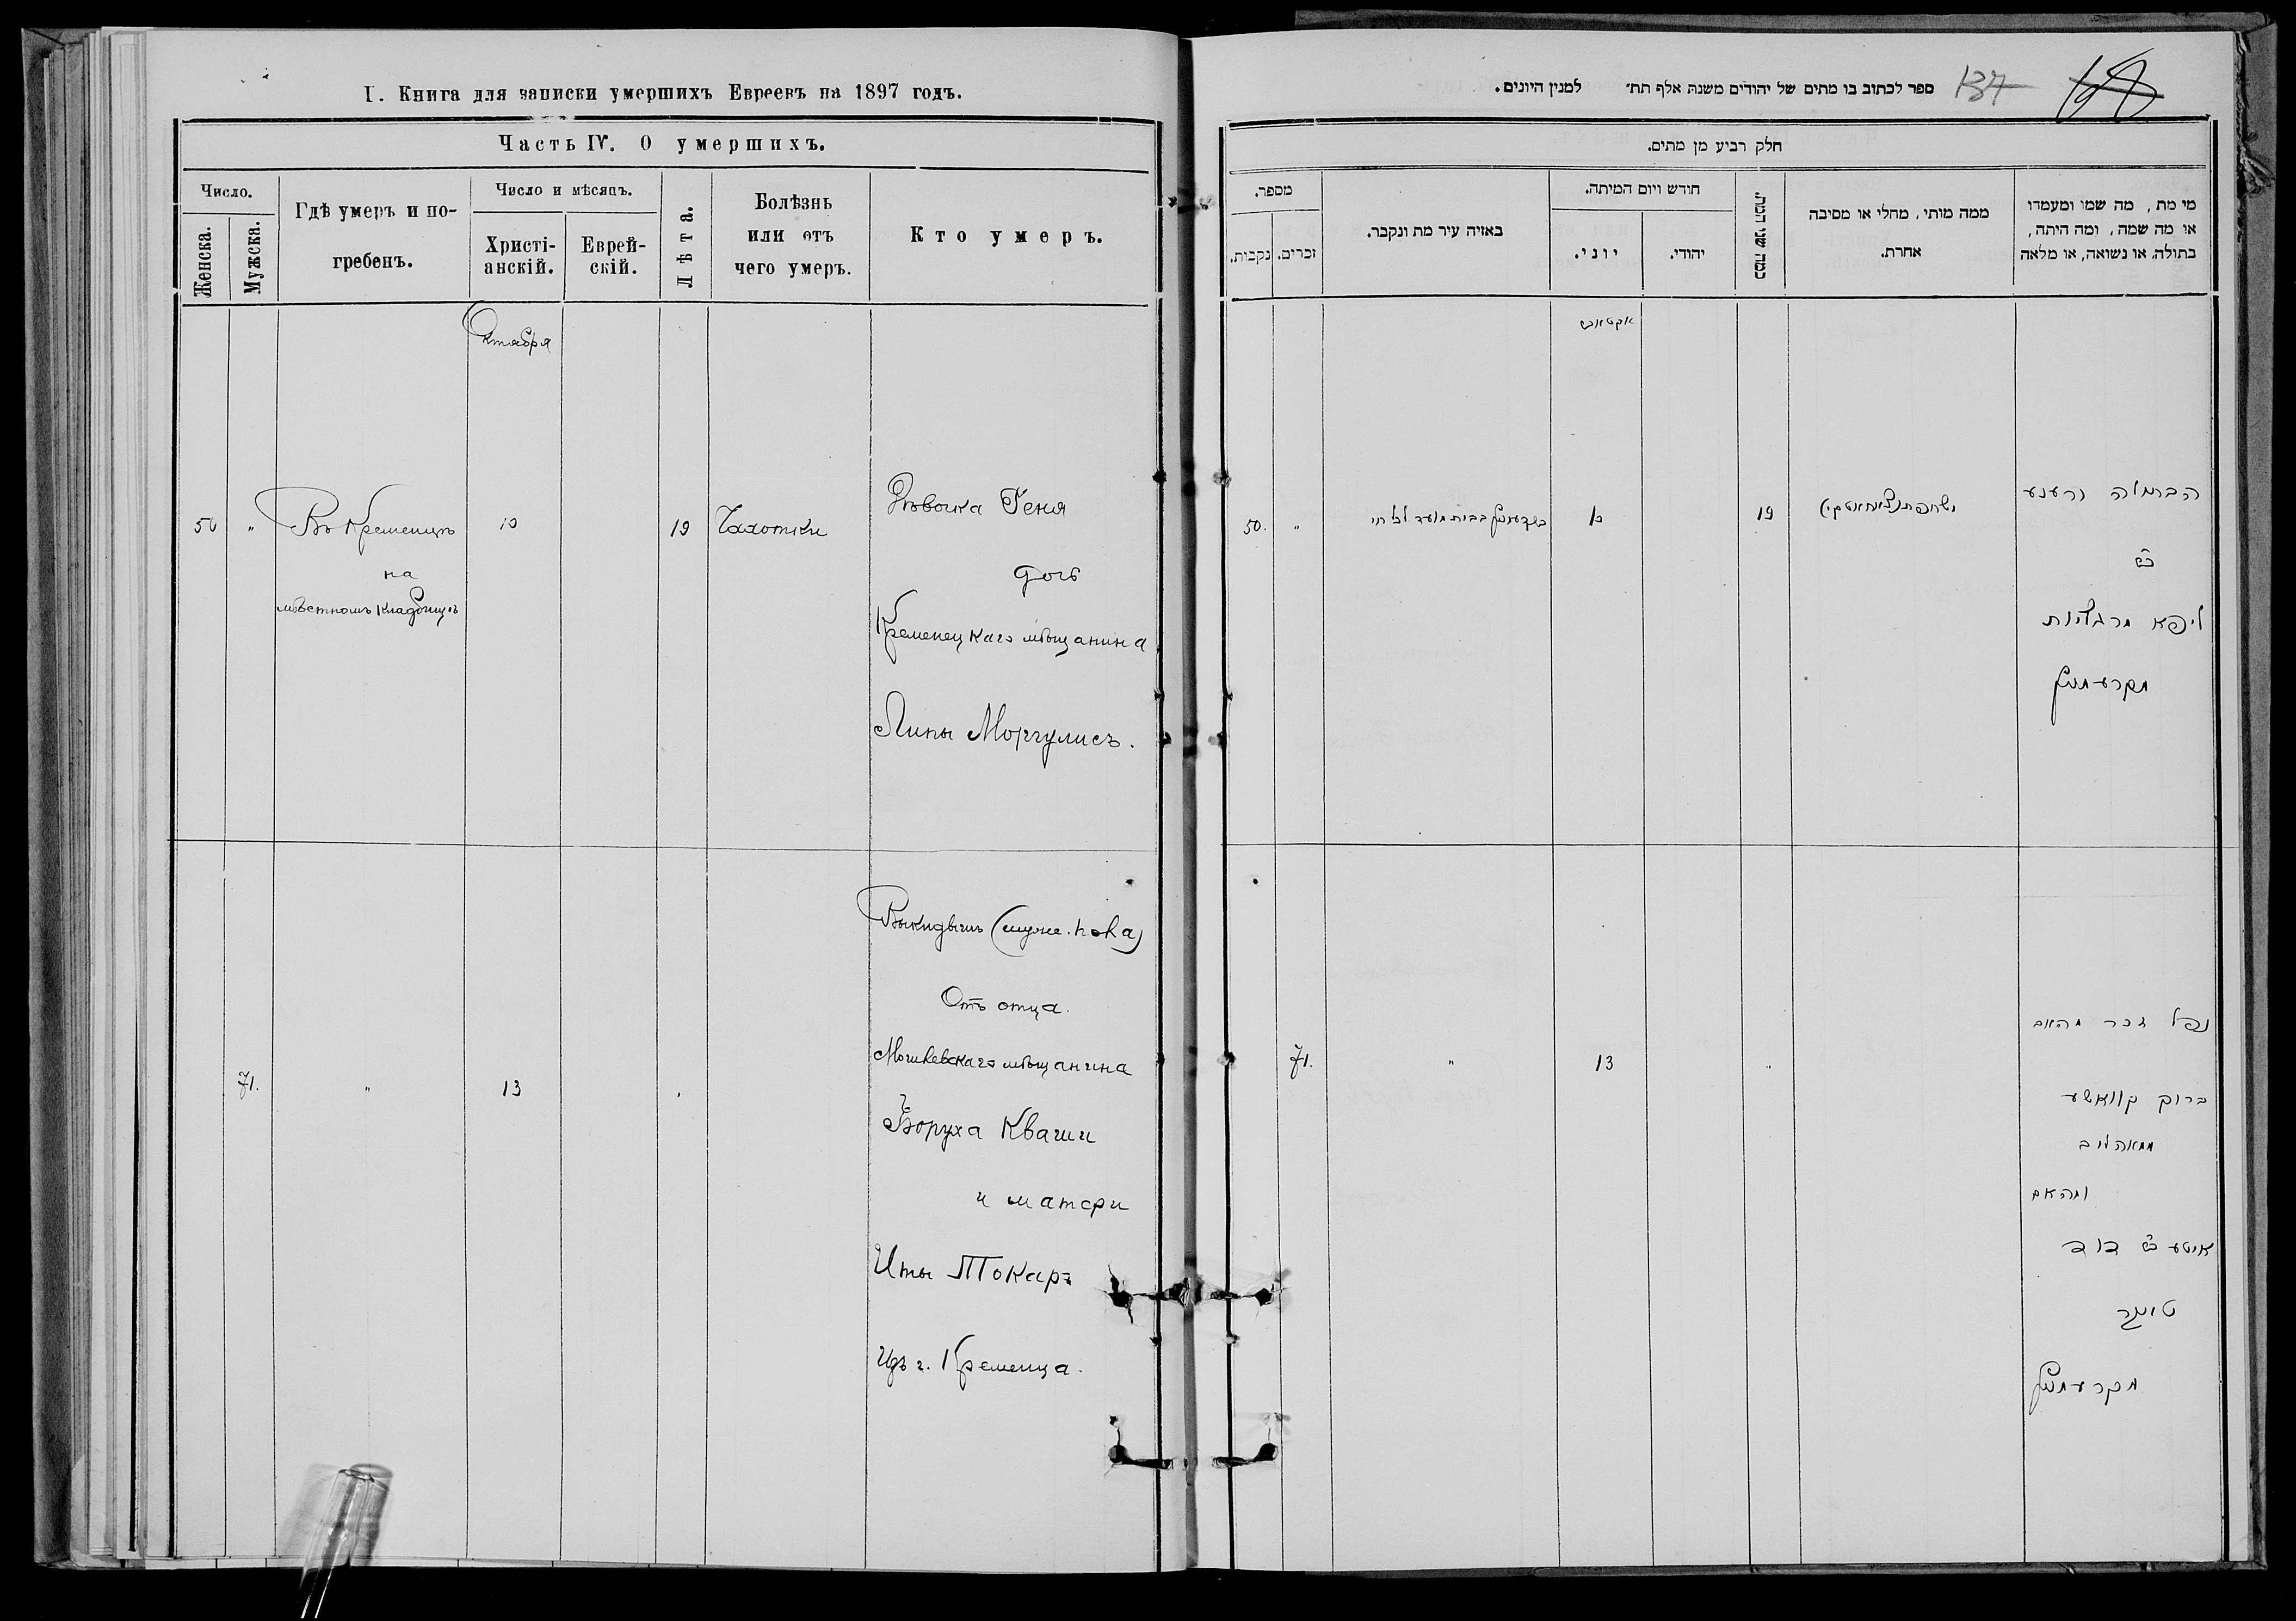 I. Книга для записки умершихъ Евреевъ на 1897 годъ.
Часть IV. О умершихъ.
Число.
Женска.
Мужска.
Гдѣ умеръ и по-
гребенъ.
Число и мѣсяцъ.
Христі-
анскій.
Еврей-
скій.
Лѣта.
Болѣзнь
или отъ
чего умеръ.
Кто умеръ.
Октября
50 " Въ Кременцѣ
на
мѣстномъ кладбищѣ
19
Чахотки
Дѣвочка Геня
дочь
Кременецкаго мѣщанина
Липы Моргулисъ.
71.
"
13
Выкидышъ
Отъ отца
мѣщанина
Боруха Кваши
и матери
Иты Токаръ
изъ г. Кременца.
ספר לכתוב בו מתים של יהודים משנת אלף תת׳ למנין היונים.
137
חלק רביע מן מתים.
מספר.
נקבות.
זכרים.
באיזה עיר מת ונקבר.
חודש ויום המיתה.
יוני.
יהודי.
כמה שני המת.
ממה מותי, מחלי או מסיבה
אחרת.
מי מת, מה שמו ומעמדו
או מה שמה, ומה היתה,
בתולה, או נשואה, או מלאה
אקטאבער
50. "
19
הבתולה הענע
בת
ליפא מרגליות
מקרעמניץ
71.
"
13
"
נפל זכר מהאב
ברוך קוואשע
ומהאם
איטע בת דוד
טוקר
מקרעמניץ